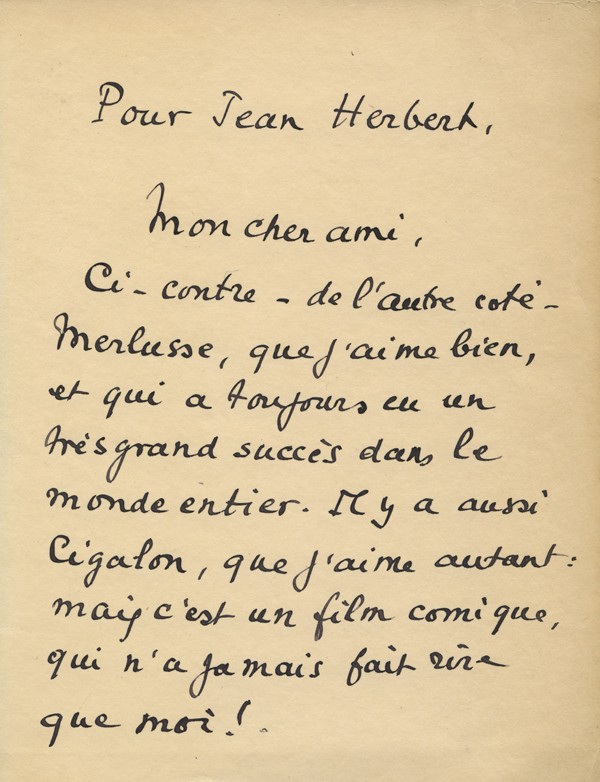 Pour Jean Herbert,
Mon cher ami,
Ci-contre - de l'autre coté -
Merlusse, que j'aime bien,
et qui a toujours eu un
très grand succès dans le
monde entier. Il y a aussi
Cigalon, que j'aime autant :
mais c'est un film comique,
qui n'a jamais fait rire
que moi !.